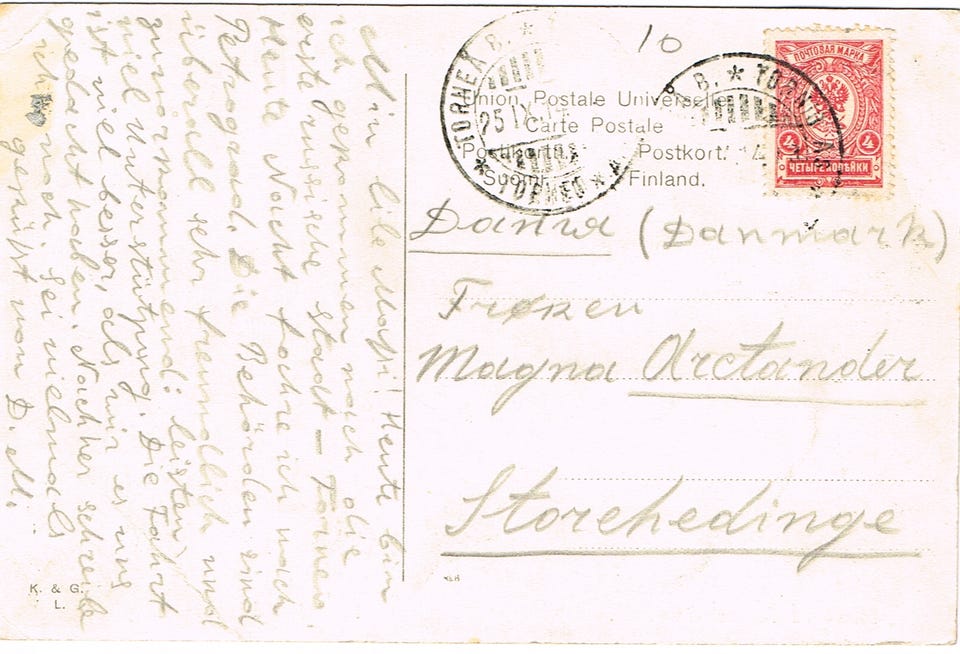 10
ПОЧТОВАЯ МАРКА
4 4
ЧЕТЫРЕ КОПѢЙКИ
TORNEÅ B. * TORNEO * A
25 IX 14
B. * TORNEÅ
Union Postale Universelle
Carte Postale
Postkort. Postkort.
Suomi. Finland.
Dania (Danmark)
Frøken
Magna Arctander
Storehedinge
K. & G.
L.
Heute bin
ich gekommen nach die
erste russische Stadt – Torneo.
Heute Nacht fahre ich nach
Petrograd. Die Behörden sind
überall sehr freundlich und
leisten
viel Unterstützung. Die Fahrt
ist viel besser, als wir es uns
gedacht haben. Nachher schreibe
ich noch. Sei vielmals
gegrüßt von D. M.